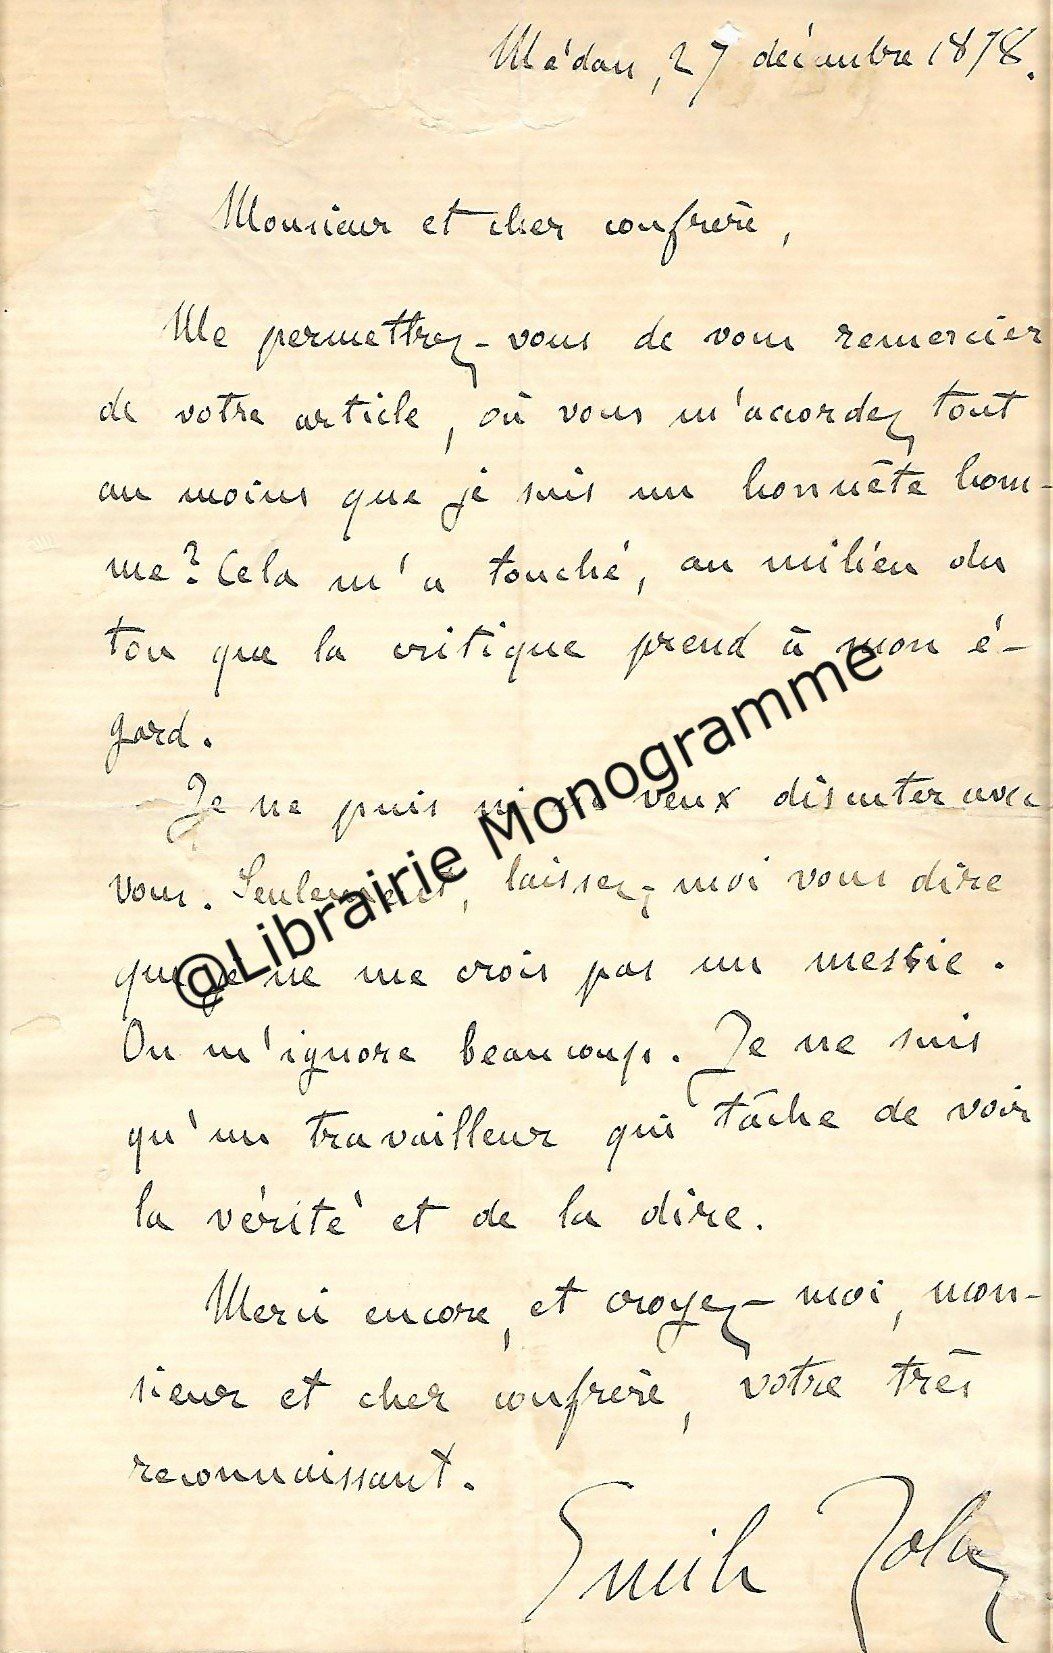 Médan, 27 décembre 1878.
Monsieur et cher confrère,
Me permettrez-vous de vous remercier
de votre article, où vous m'accordez tout
au moins que je suis un honnête hom-
me? Cela m'a touché, au milieu du
ton que la critique prend à mon é-
gard.
Je ne puis ni ne veux discuter avec
vous. Seulement, laissez-moi vous dire
que je ne me crois pas un messie.
On m'ignore beaucoup. Je ne suis
qu'un travailleur qui tâche de voir
la vérité et de la dire.
Merci encore, et croyez-moi, mon-
sieur et cher confrère, votre très
reconnaissant.
Emile Zola
@Librairie Monogramme